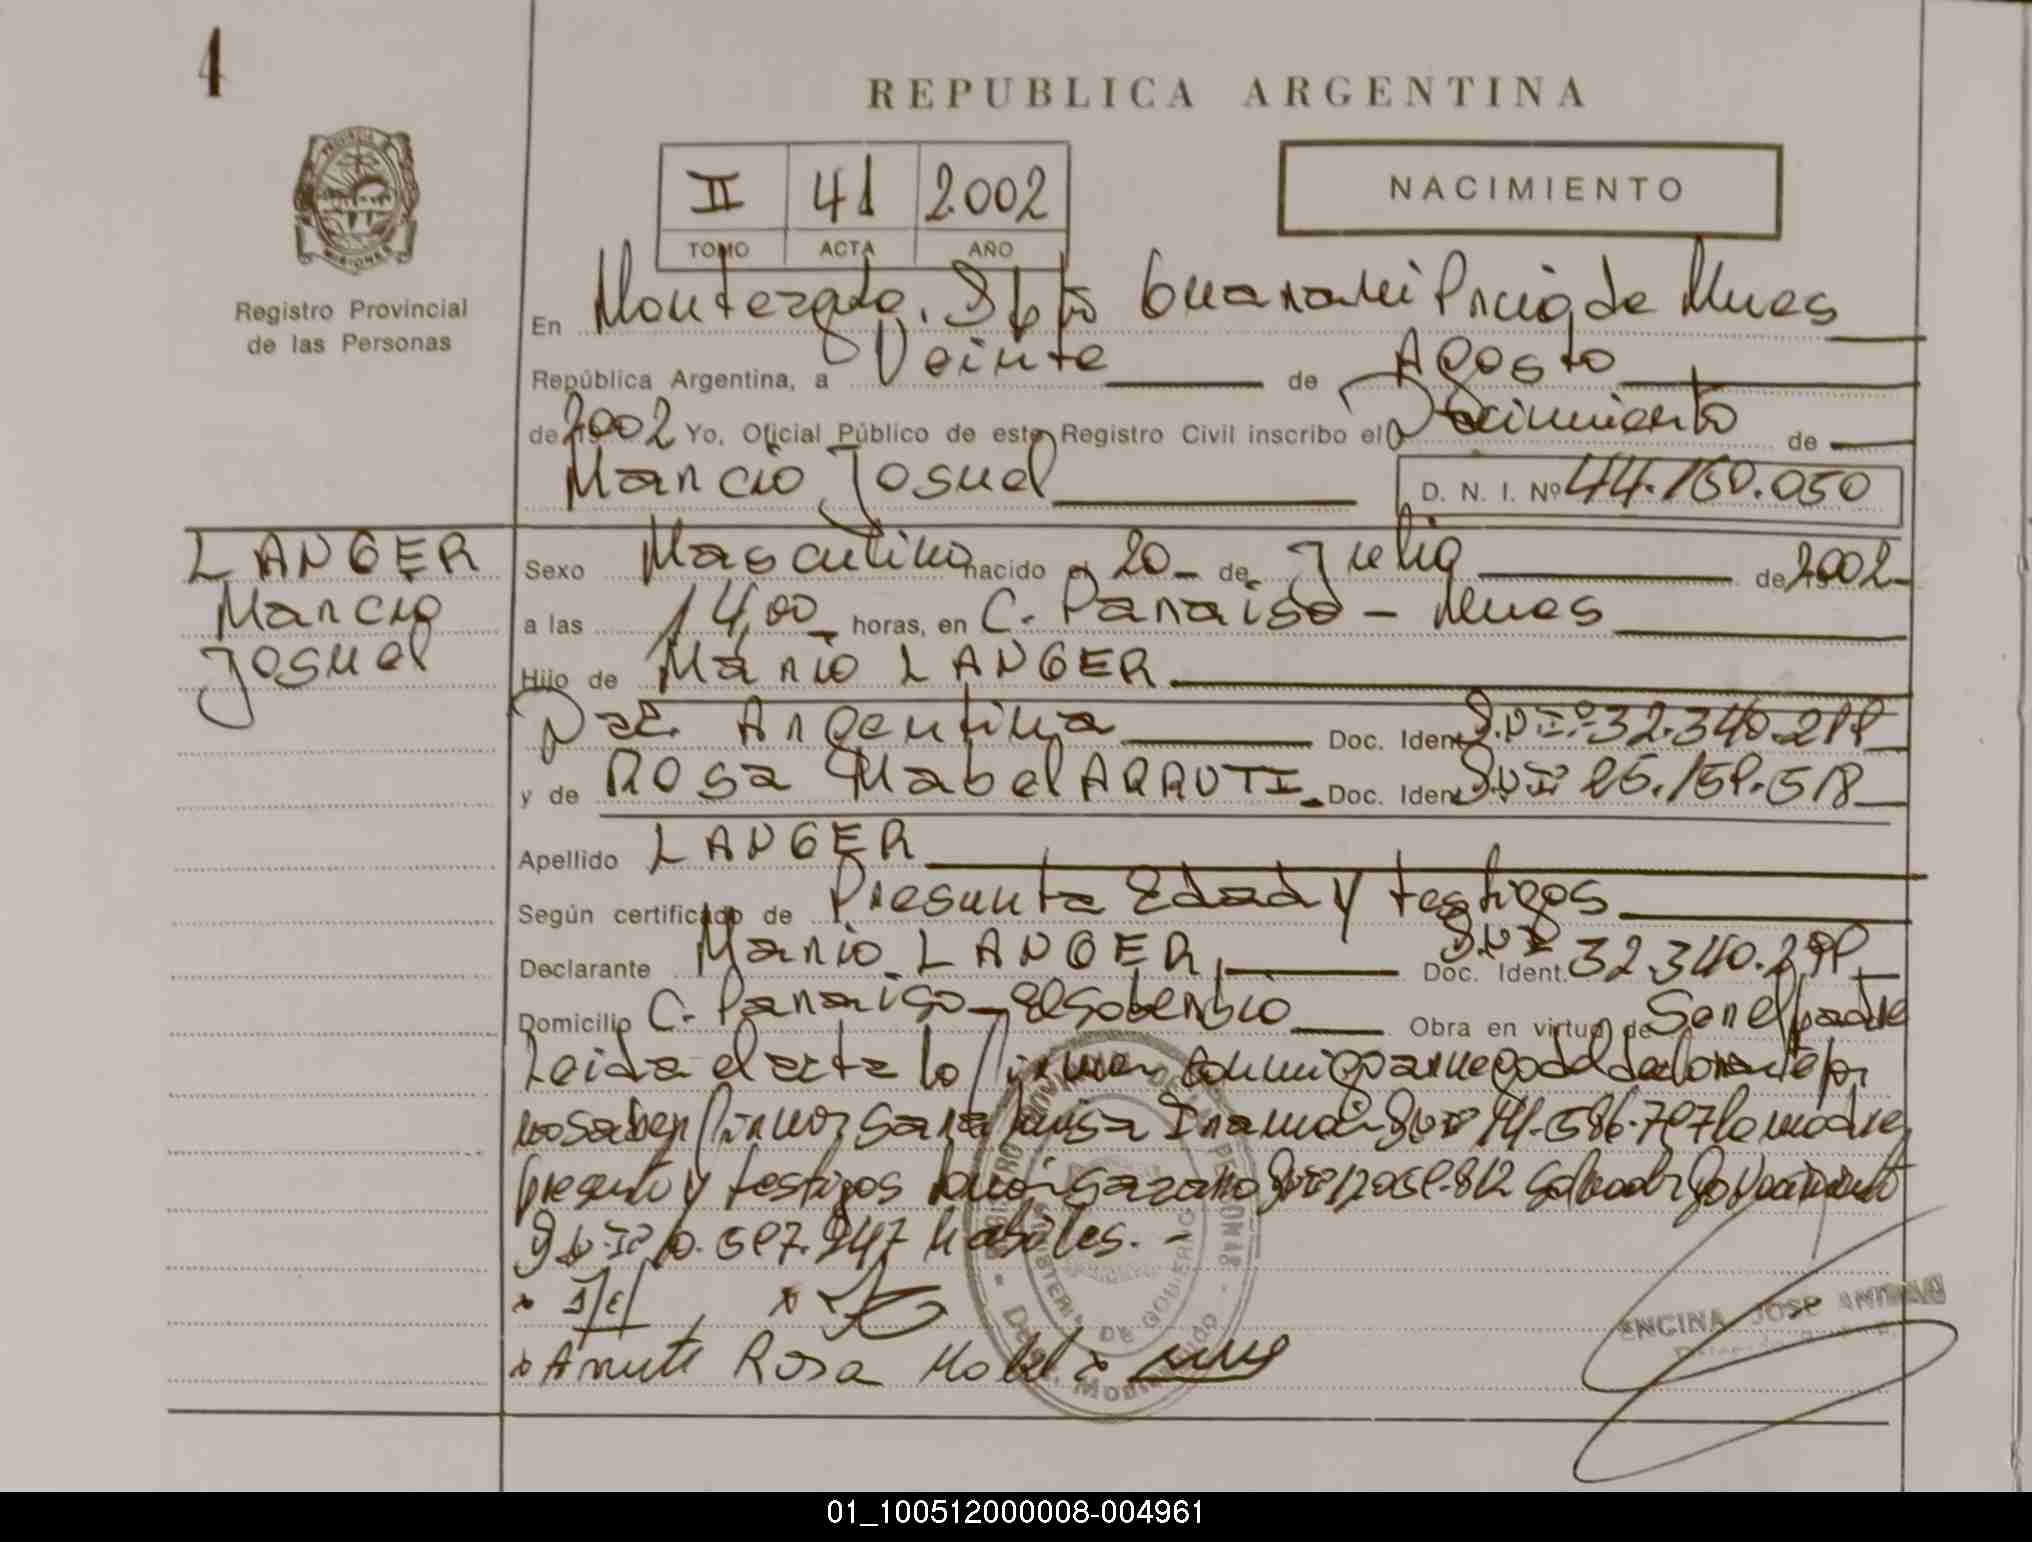 4
REPUBLICA ARGENTINA
II 41 2.002
TOMO ACTA AÑO
NACIMIENTO
PROVINCIA DE
MISIONES
Registro Provincial
de las Personas
En Monteagudo. Dpto Guarani Pncia de Mnes
República Argentina, a Veinte de Agosto
de 2002 Yo, Oficial Público de este Registro Civil inscribo el Nacimiento de
Marcio Josuel D. N. I. Nº 44.150.050
LANGER
Marcio
Josuel
Sexo Masculino nacido el 20 de Julio de 2002
a las 14,00 horas, en C. Paraiso - Mnes
Hijo de Mario LANGER
Nac. Argentina Doc. Ident. D.N.I. 32.340.299
y de Rosa Mabel ARRUTI. Doc. Ident. D.N.I.
Apellido LANGER
Según certificado de Presunta Edad y testigos
Declarante Mario LANGER Doc. Ident. D.N.I 32.340.299
Domicilio C. Paraiso - El Soberbio Obra en virtud de Ser el padre
Leida el acta la firman conmigo a ruego del declarante por
no saber firmar Sara Luisa la madre
presente y testigos
habiles. -
Arruti Rosa Mabel
ENCINA JOSE ANIBAL
01_100512000008-004961